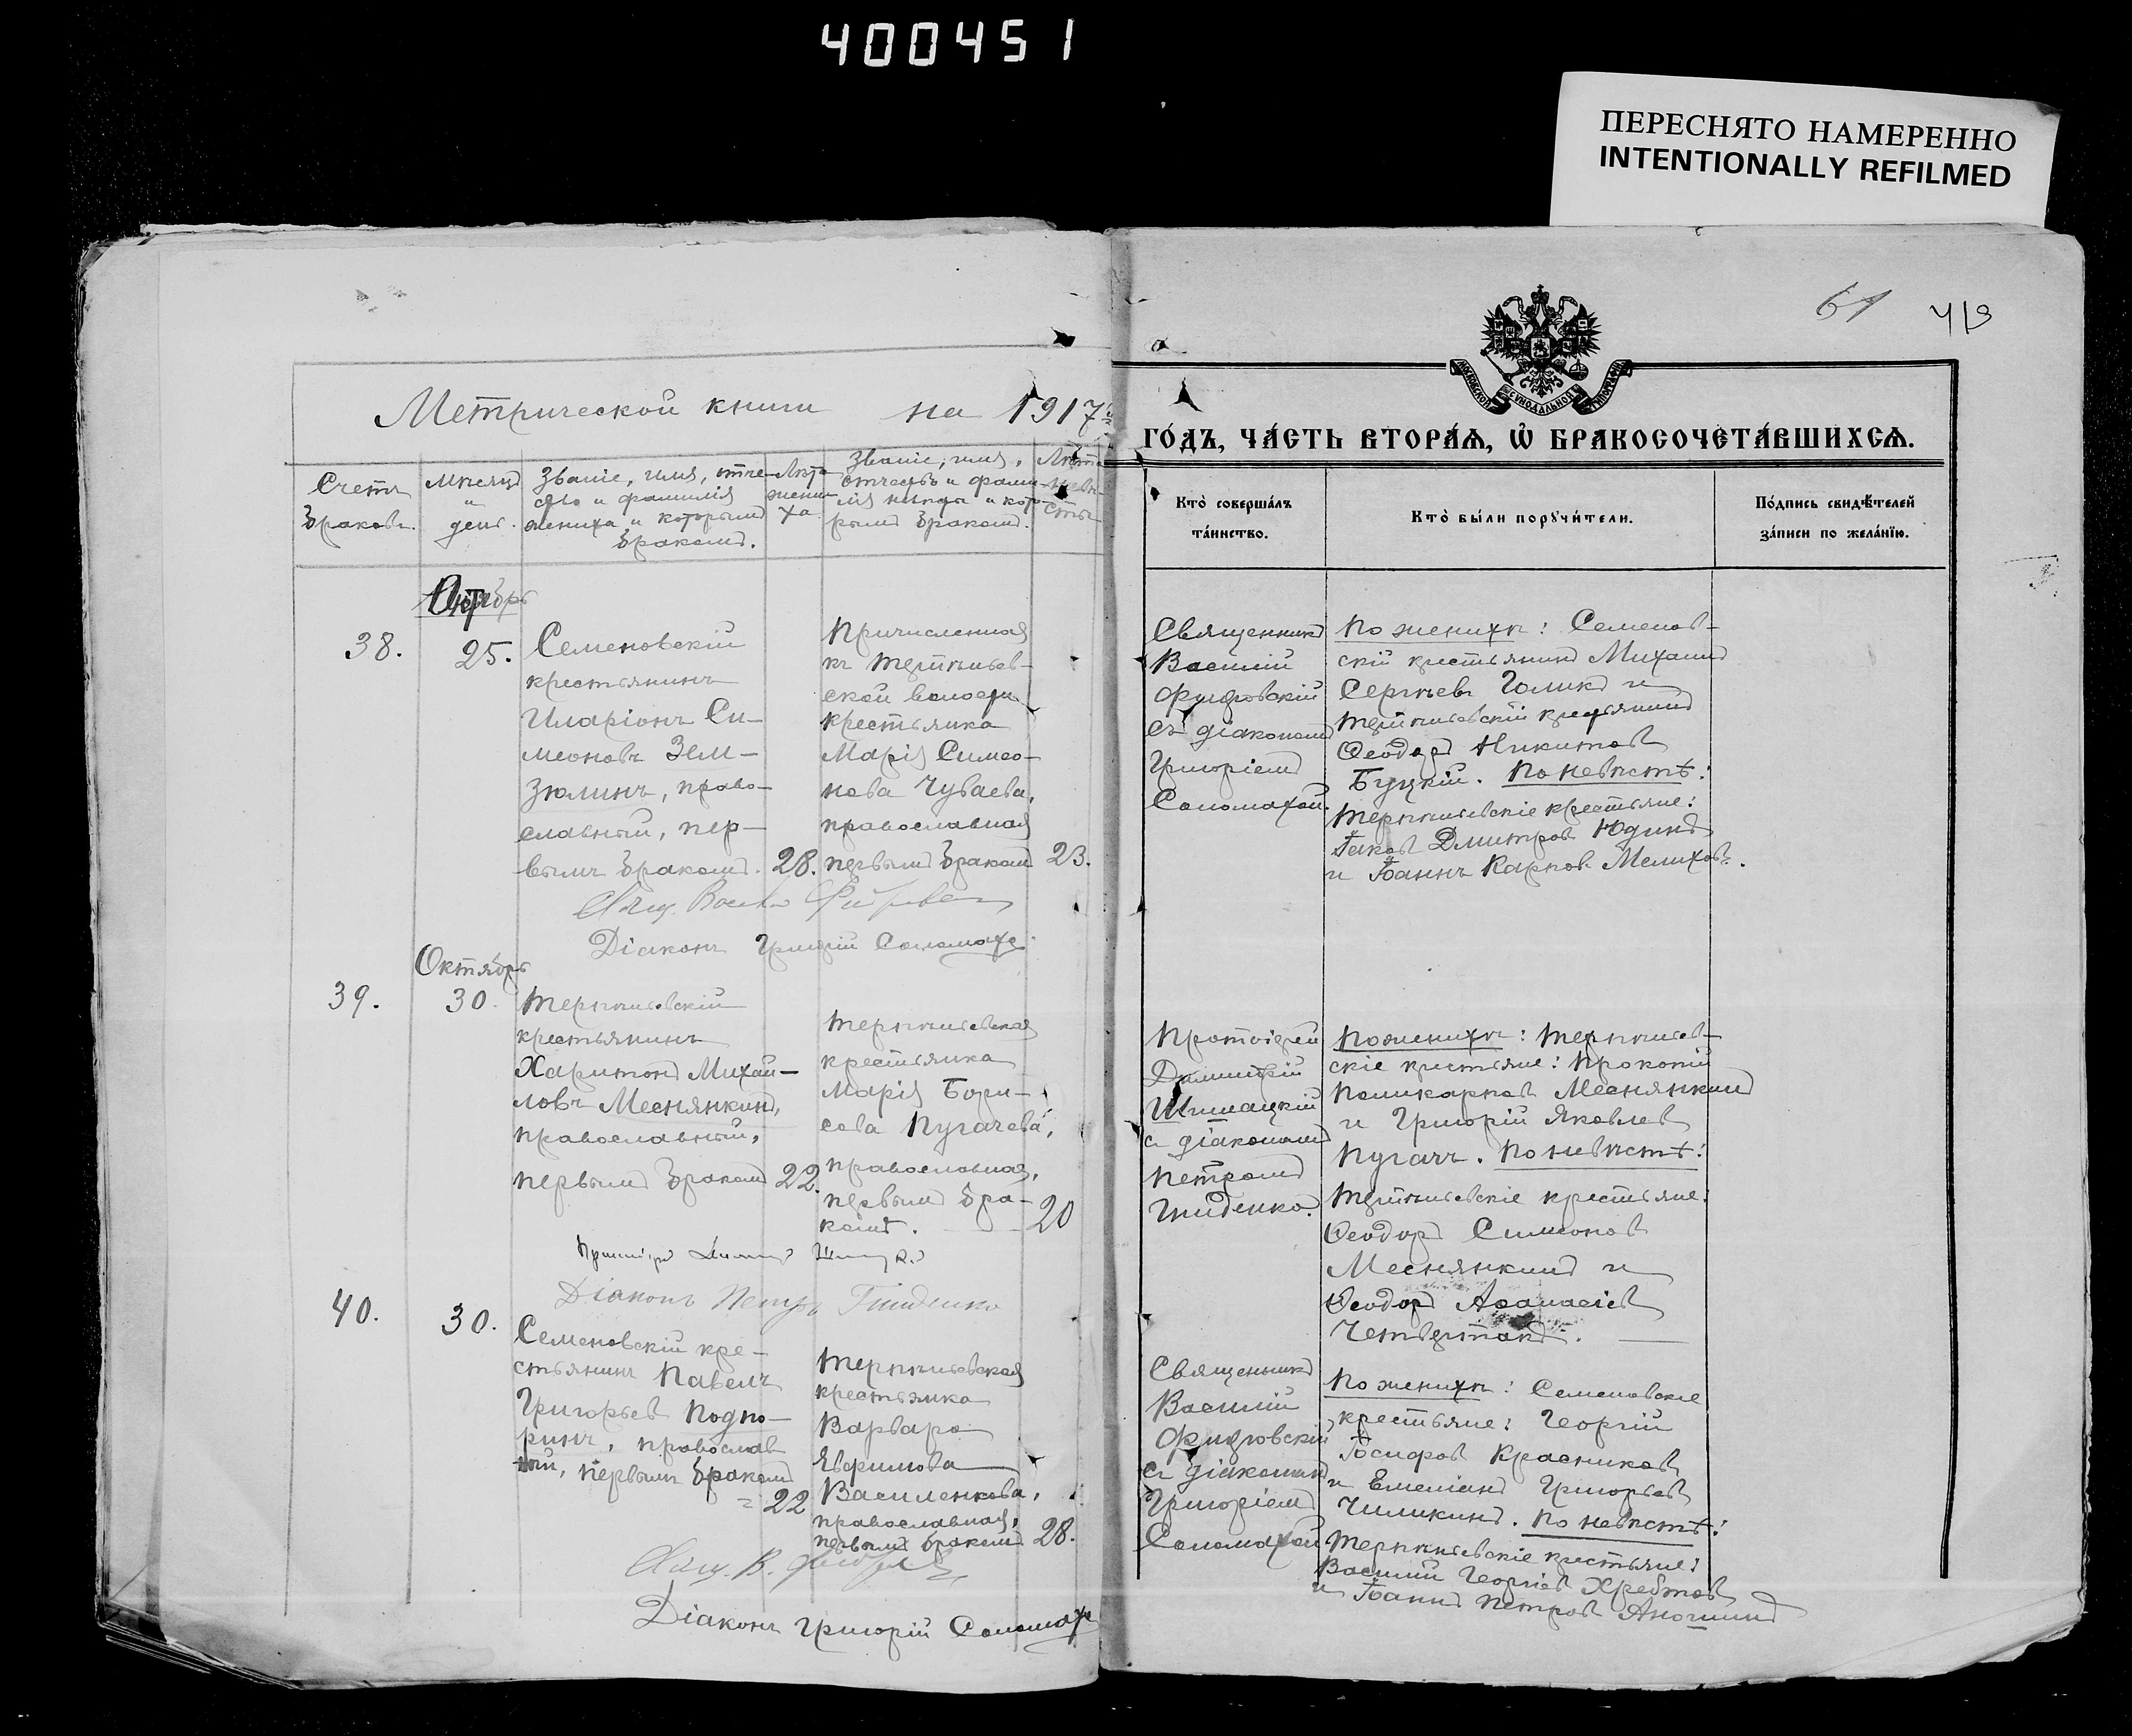 400451
ПЕРЕСНЯТО НАМЕРЕННО
INTENTIONALLY REFILMED
61
419
МОСКОВСКОЙ СѴНОДАЛЬНОЙ ТИПОГРАФІИ
Метрической книги на 1917й
ГОДЪ, ЧАСТЬ ВТОРАѦ, Ѡ БРАКОСОЧЕТАВШИХСѦ.
Счетъ
браковъ.
Мѣсяцъ
и
день.
Званіе, имя, отче-
ство и фамилія
жениха и которымъ
бракомъ.
Лѣта
жени-
ха
Званіе, имя,
отчество и фами-
лія невѣсты и кото-
рымъ бракомъ.
Лѣта
невѣ-
сты
Кто совершалъ
таинство.
Кто были поручители.
Подпись свидѣтелей
записи по желанію.
38.
25.
Семеновскій
крестьянинъ
Иларіонъ Си-
меоновъ Зем-
зюлинъ, право-
славный, пер-
вымъ бракомъ.
28.
Причисленная
къ Терпѣньев-
ской волости
крестьянка
Марія Симео-
нова Чубаева,
православная
первымъ бракомъ
23.
Священникъ
Василій
съ діакономъ
Григоріемъ
Соломахой.
По женихѣ: Семенов-
скій крестьянинъ Михаилъ
Сергѣевъ Голикъ и
Терпѣньевскій крестьянинъ
Ѳеодоръ Никитовъ
Буцкій. По невѣстѣ:
Терпѣньевскіе крестьяне:
Іаковъ Димитровъ Юдинъ
и Іоаннъ Карповъ Мелиховъ.
Діаконъ Григорій Соломаха.
Октябрь
39.
30.
Терпѣньевскій
крестьянинъ
Харитонъ Михаи-
ловъ Меснянкинъ,
православный,
первымъ бракомъ
22.
Терпѣньевская
крестьянка
Марія Бори-
сова Пугачева,
православная,
первымъ бра-
комъ.
20
Протоіерей
Димитрій
съ діакономъ
Петромъ
Гниденко.
По женихѣ: Терпѣньев-
скіе крестьяне: Прокопій
Поликарповъ Меснянкинъ
и Григорій Яковлевъ
Пугачъ. По невѣстѣ:
Терпѣньевскіе крестьяне:
Ѳеодоръ Симеоновъ
Меснянкинъ и
Ѳеодоръ Аѳанасіевъ
Четвертакъ.
Діаконъ Петръ Гниденко
40.
30.
Семеновскій кре-
стьянинъ Павелъ
Григорьевъ Подпо-
ринъ, православ
ный, первымъ бракомъ
22
Терпѣньевская
крестьянка
Варвара
Евфимова
Василенкова,
православная,
первымъ бракомъ
28.
Священникъ
Василій
съ діакономъ
Григоріемъ
Соломахой
По женихѣ: Семеновские
крестьяне: Георгій
Іосифовъ Красниковъ
и Емеліанъ Григорьевъ
Чиликинъ. По невѣстѣ:
Терпѣньевскіе крестьяне:
Василій Георгіевъ Хребтовъ
и Іоаннъ Петровъ Аношинъ
Діаконъ Григорій Соломаха